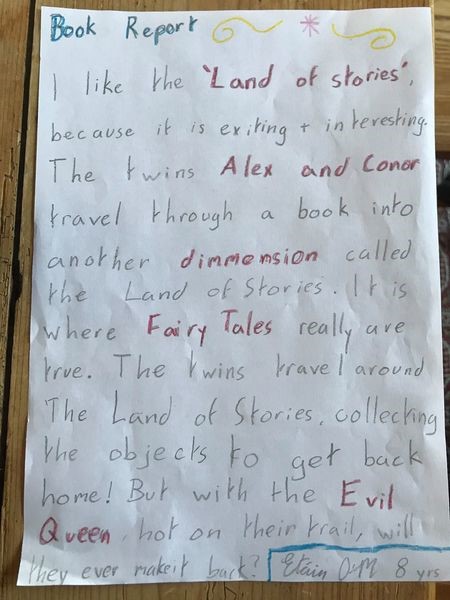 Book Report
I like the 'Land of stories',
because it is exiting + interesting.
The twins Alex and Conor
travel through a book into
another dimmension called
the Land of Stories. It is
where Fairy Tales really are
true. The twins travel around
The Land of Stories, collecting
the objects to get back
home! But with the Evil
Queen, hot on their trail, will
they ever make it back? Etain O-M 8 yrs